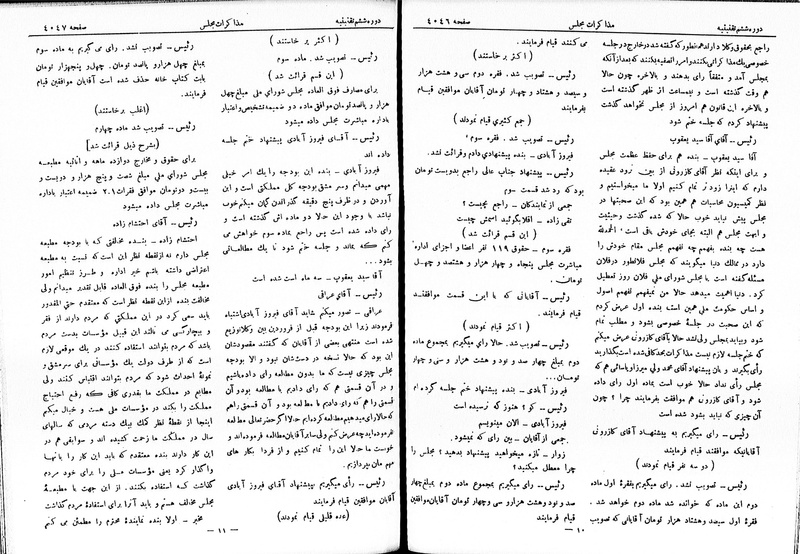 دوره ششم تقنینیه
مذاکرات مجلس
صفحه ۴۰۴۶
راجع بحقوق وکلا دارند همانطور که گفته شد در خارج در جلسه
خصوصی یك مذاکراتی بکنند و امر را تصفیه بکنند که بعد از آنکه
بمجلس آمد و متفقاً رای بدهند و بالاخره چون حالا
هم وقت گذشته است و نیمساعت از ظهر گذشته است
و بالاخره این قانون هم امروز از مجلس نخواهد گذشت
پیشنهاد کردم که جلسه ختم شود
رئیس ـ آقای آقا سید یعقوب
آقا سید یعقوب ـ بنده هم برای حفظ عظمت مجلس
و برای اینکه نظر آقای کازرونی از بین نرود عقیده
دارم که اینرا زودتر تمام کنیم اولا ما میخواستیم و
نظر کمیسیون محاسبات هم همین بود که این صحبتها در
مجلس پیش نیاید خوب حالا که شده گذشت و حیثیت
و ابهت مجلس هم البته بجای خودش باقی است
هست چه بنده بفهمم چه نفهمم مجلس مقام خودش را
دارد در ممالك دنیا میگویند که مجلس فلانطور در فلان
مسئله گفته است یا مجلس شورای ملی فلان روز تعطیل
کرد. دنیا اهمیت میدهد حالا من نمیفهمم نفهمم اصول
و اساس حکومت ملی همین است بنده اول عرض کردم
که این صحبت در جلسهٔ خصوصی بشود و مطلب تمام
شود و بیاید بمجلس ولی نشد حالا بآقای کازرونی عرض میکنم
که ختم جلسه لازم نیست مذاکرات بحد کافی شده است بگذارید
رأی بگیرند و بان پیشنهاد آقای محمد ولی میرزا و یاسائی هم که
مجلس رأی نداد حالا خوب است بماده اول رای داده
شود و آقای کازرونی هم موافقت بفرمایند چرا؟ چون
آن چیزی که نباید بشود شده است
رئیس ـ رای میگیریم به پیشنهاد آقای کازرونی
آقایانیکه موافقند قیام فرمایند
( دو سه نفر قیام نمودند )
رئیس ـ تصویب نشد. رای میگیریم بفقرهٔ اول ماده
دوم این ماده که خوانده شد ماده دوم خواهد شد.
فقرهٔ اول سیصد و هشتاد هزار تومان آقایانی که تصویب
می کنند قیام فرمایند.
( اکثر برخاستند )
رئیس ـ تصویب شد. فقره دوم سی و هشت هزار
و سیصد و هشتاد و چهار تومان آقایان موافقین قیام
بفرمایند
( جم کثیری قیام نمودند )
رئیس ـ تصویب شد. فقره سوم
فیروز آبادی ـ بنده پیشنهادی دادم و قرائت نشد.
رئیس ـ پیشنهاد جناب عالی راجع بدویست تومان
بود که رد شد قسمت سوم
جمعی از نمایندگان ـ راجع بچیست؟
تقی زاده ـ اقلا بگوئید اسمش چیست
( این قسم قرائت شد )
فقره سوم ـ حقوق ۱۱۹ نفر اعضا و اجزای اداره
مباشرت مجلس پنجاه و چهار هزار و هشتصد و چهل
تومان.
رئیس ـ آقایانی که با این قسمت موافقند
قیام فرمایند.
( اکثر قیام نمودند )
رئیس ـ تصویب شد. حالا رای میگیریم بمجموع ماده
دوم بمبلغ چهار صد و نود و هشت هزار و سی و چهار
تومان...
فیروز آبادی ـ بنده پیشنهاد ختم جلسه کرده ام
رئیس ـ کو؟ هنوز که نرسیده است
فیروز آبادی ـ الان مینویسم
جمعی از آقایان ـ بین رای که نمیشود.
زوار ـ تازه میخواهید پیشنهاد بدهید؟ مجلس را
چرا معطل میکنید؟
رئیس ـ رای میگیریم بمجموع ماده دوم بمبلغ چهار
صد و نود و هشت هزار و سی و چهار تومان آقایان موافقین
قیام فرمایند
ـ ۱۰ ـ
دوره ششم تقنینیه
مذاکرات مجلس
صفحه ۴۰۴۷
( اکثر بر خاستند )
رئیس ـ تصویب شد. ماده سوم
( این قسم قرائت شد )
برای مصارف فوق العاده مجلس شورای ملی مبلغ چهل
هزار و پانصد تومان موافق ماده دو ضمیمه تشخیص و اعتبار
باداره مباشرت مجلس داده میشود
رئیس ـ آقای فیروز آبادی پیشنهاد ختم جلسه
داده اند
فیروز آبادی ـ بنده این بودجه را یك امر خیلی
مهمی میدانم و سر مشق بودجه کل مملکتی است و این
آوردن و در ظرف پنج دقیقه گذراندن گمان میکنم خوب
نباشد با وجود این حالا دو ماده اش گذشته است و
رای داده شده است پس راجع بماده سوم خواهش می
کنم که بماند و جلسه ختم شود تا یك مطالعاتی
بشود...
آقا سید یعقوب ـ سه ماه است شده است
رئیس ـ آقای عراقی
عراقی ـ تصور میکنم شاید آقای فیروز آبادی اشتباه
فرمودند زیرا این بودجه قبل از فروردین بین وکلا توزیع
شده است منتهی بعضی از آقایان که گفتند مقصودشان
این بود که حالا نسخه در دستشان نبود و الا بودجه
مجلس چیزی نیست که ما بدون مطالعه رای داده باشیم
و در آن قسمتی هم که رای دادیم با مطالعه بود و آن
قسمتی را هم که رای دادیم با مطالعه بود و آن قسمت راهم
که حالا رای میدهیم مطالعه کرده ایم حالا اگر حضرتعالی مطالعه
نفرموده اید چه عرض کنم ولی سایر آقایان مطالعه فرموده اند و
خوب است ما حالا این را تمام کنیم و از فردا بکار های
مهم مان بپردازیم.
رئیس ـ رأی میگیریم بپیشنهاد آقای فیروز آبادی
آقایان موافقین قیام فرمایند
( عده قلیلی قیام نمودند )
رئیس ـ تصویب نشد. رای می گیریم به ماده سوم
بمبلغ چهل هزار و پانصد تومان. چهل و پنجهزار تومان
بابت کتاب خانه حذف شده است آقایان موافقین قیام
فرمایند.
( اغلب برخاستند )
رئیس ـ تصویب شد ماده چهارم
( بشرح ذیل قرائت شد )
برای حقوق و مخارج دوازده ماهه و اثاثیه مطبعه
مجلس شورای ملی مبلغ شصت و پنج هزار و دویست و
بیست و دو تومان موافق فقرات ۲،۱ ضمیمه اعتبار باداره
مباشرت مجلس داده میشود
رئیس ـ آقای احتشام زاده
احتشام زاده ـ بنده مخالفتی که با بودجه مطبعه
مجلس دارم نه از نقطه نظر این است که نسبت به مطبعه
اعتراضی داشته باشم خیر اداره و طرز تنظیم امور
مطبعه مجلس را بنده فوق العاده قابل تقدیر میدانم ولی
مخالفت بنده از این نقطه نظر است که معتقدم حتی المقدور
باید سعی کرد در این مملکتی که مردم دارند از فقر
و بیچارگی می نالند این قبیل مؤسسات بدست مردم
باشد که مردم بتوانند استفاده کنند در یك موقعی لازم
است که از طرف دولت یك مؤسساتی برای سرمشق و
نمونهٔ احداث شود که مردم بتوانند اقتباس کنند ولی
مطابع در مملکت ما بقدری کافی که رفع احتیاج
مملکت را بکند در مؤسسات ملی هست و خیال میکنم
اینجا از نقطهٔ نظر کمك بیك دسته مردمی که سالهای
سال در مملکت ما زحمت کشیده اند و سوابقی هم در
این کار دارند بنده معتقدم که باید این کار را بآنها
واگذار کرد یعنی مؤسسات ملی را برای خود مردم
گذاشت که استفاده بکنند. از این جهت با مطبعهٔ
مجلس مخالف هستم و باید آنرا برای استفادهٔ مردم گذاشت
مخبر ـ اولا بنده نمایندهٔ محترم را مطمئن می کنم
ـ ۱۱ ـ